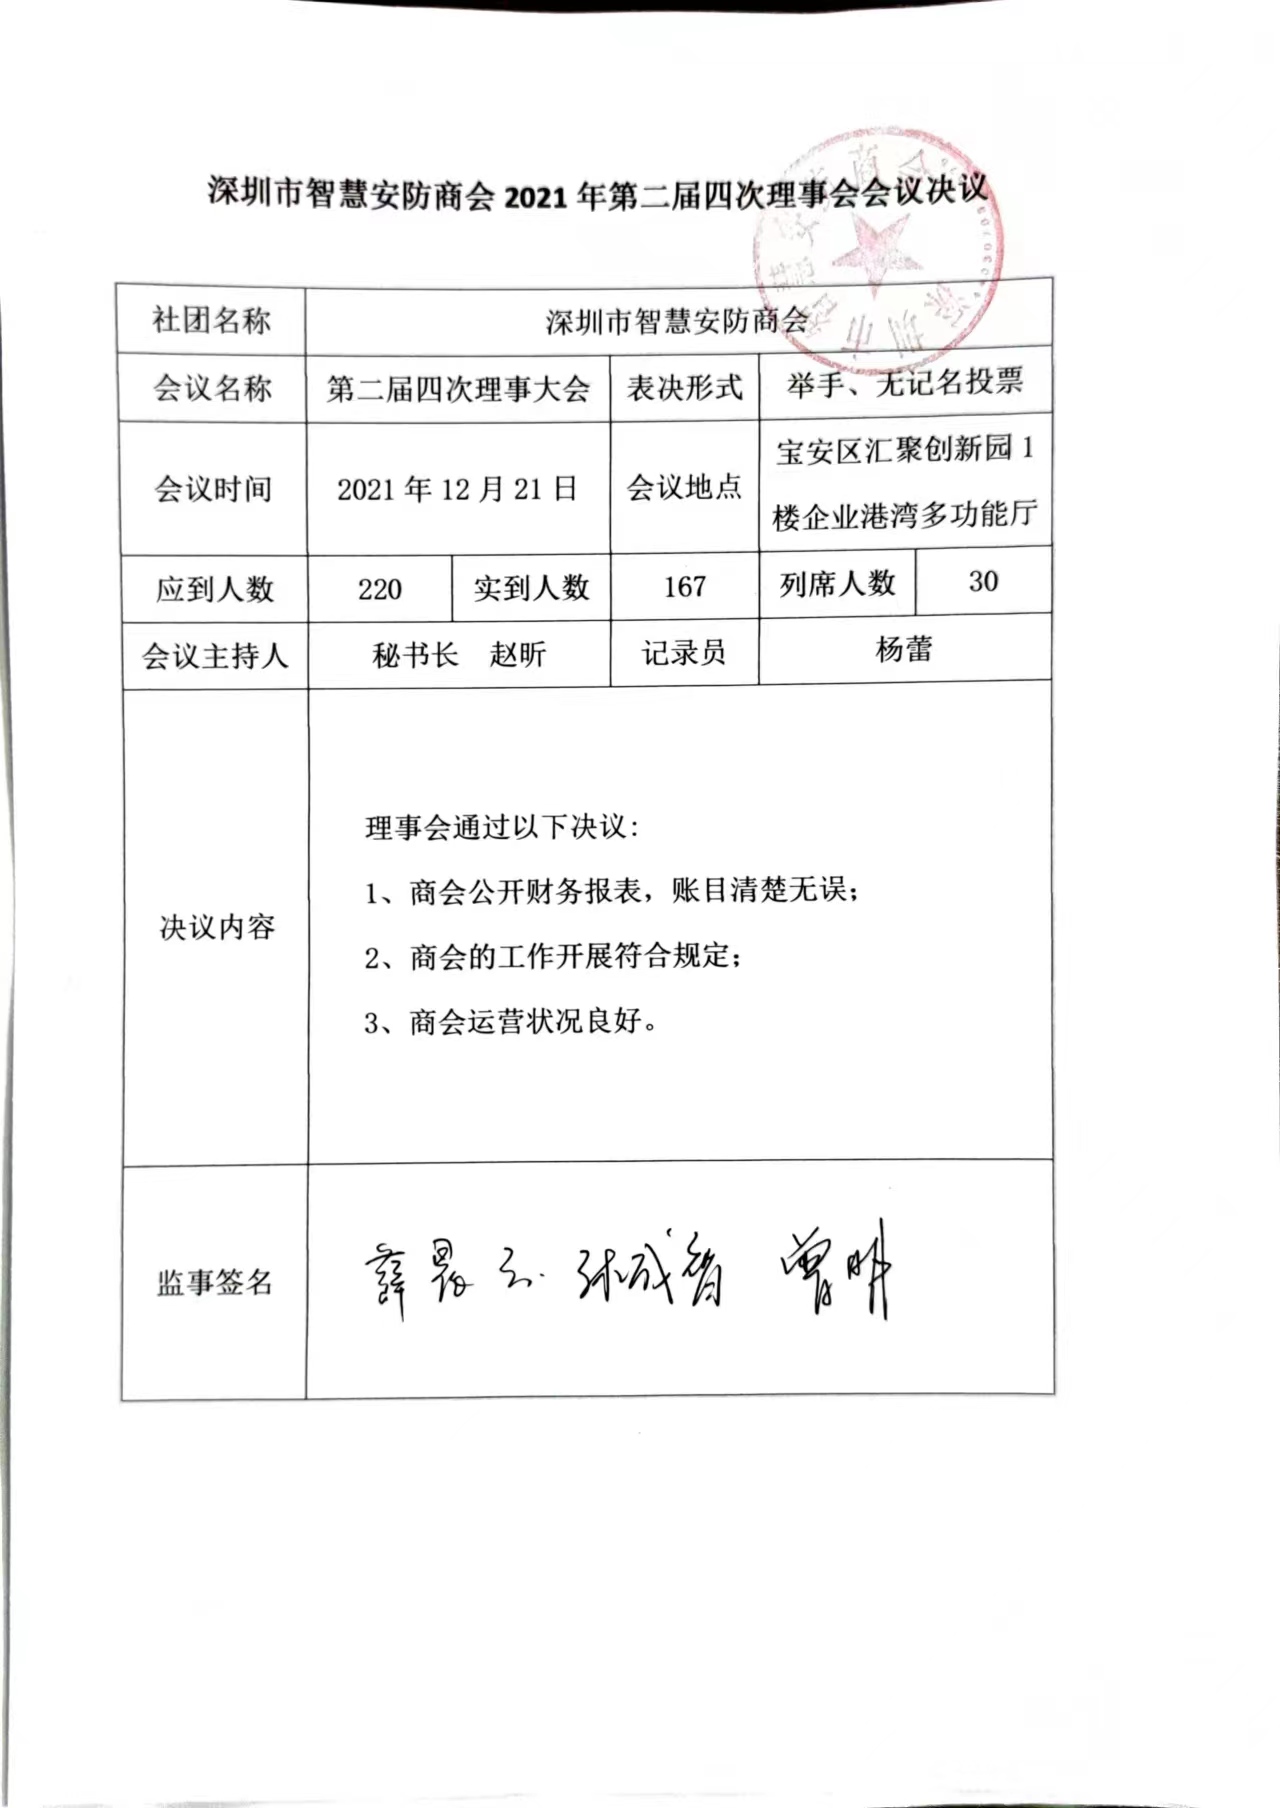 深圳市智慧安防商会 2021 年第二届四次理事会会议决议
社团名称 深圳市智慧安防商会
会议名称 第二届四次理事大会 表决形式 举手、无记名投票
会议时间 2021 年 12 月 21 日 会议地点 宝安区汇聚创新园 1
楼企业港湾多功能厅
应到人数 220 实到人数 167 列席人数 30
会议主持人 秘书长 赵昕 记录员 杨蕾
决议内容
理事会通过以下决议:
1、商会公开财务报表，账目清楚无误；
2、商会的工作开展符合规定；
3、商会运营状况良好。
监事签名 张成智 曾明
深圳市智慧安防商会